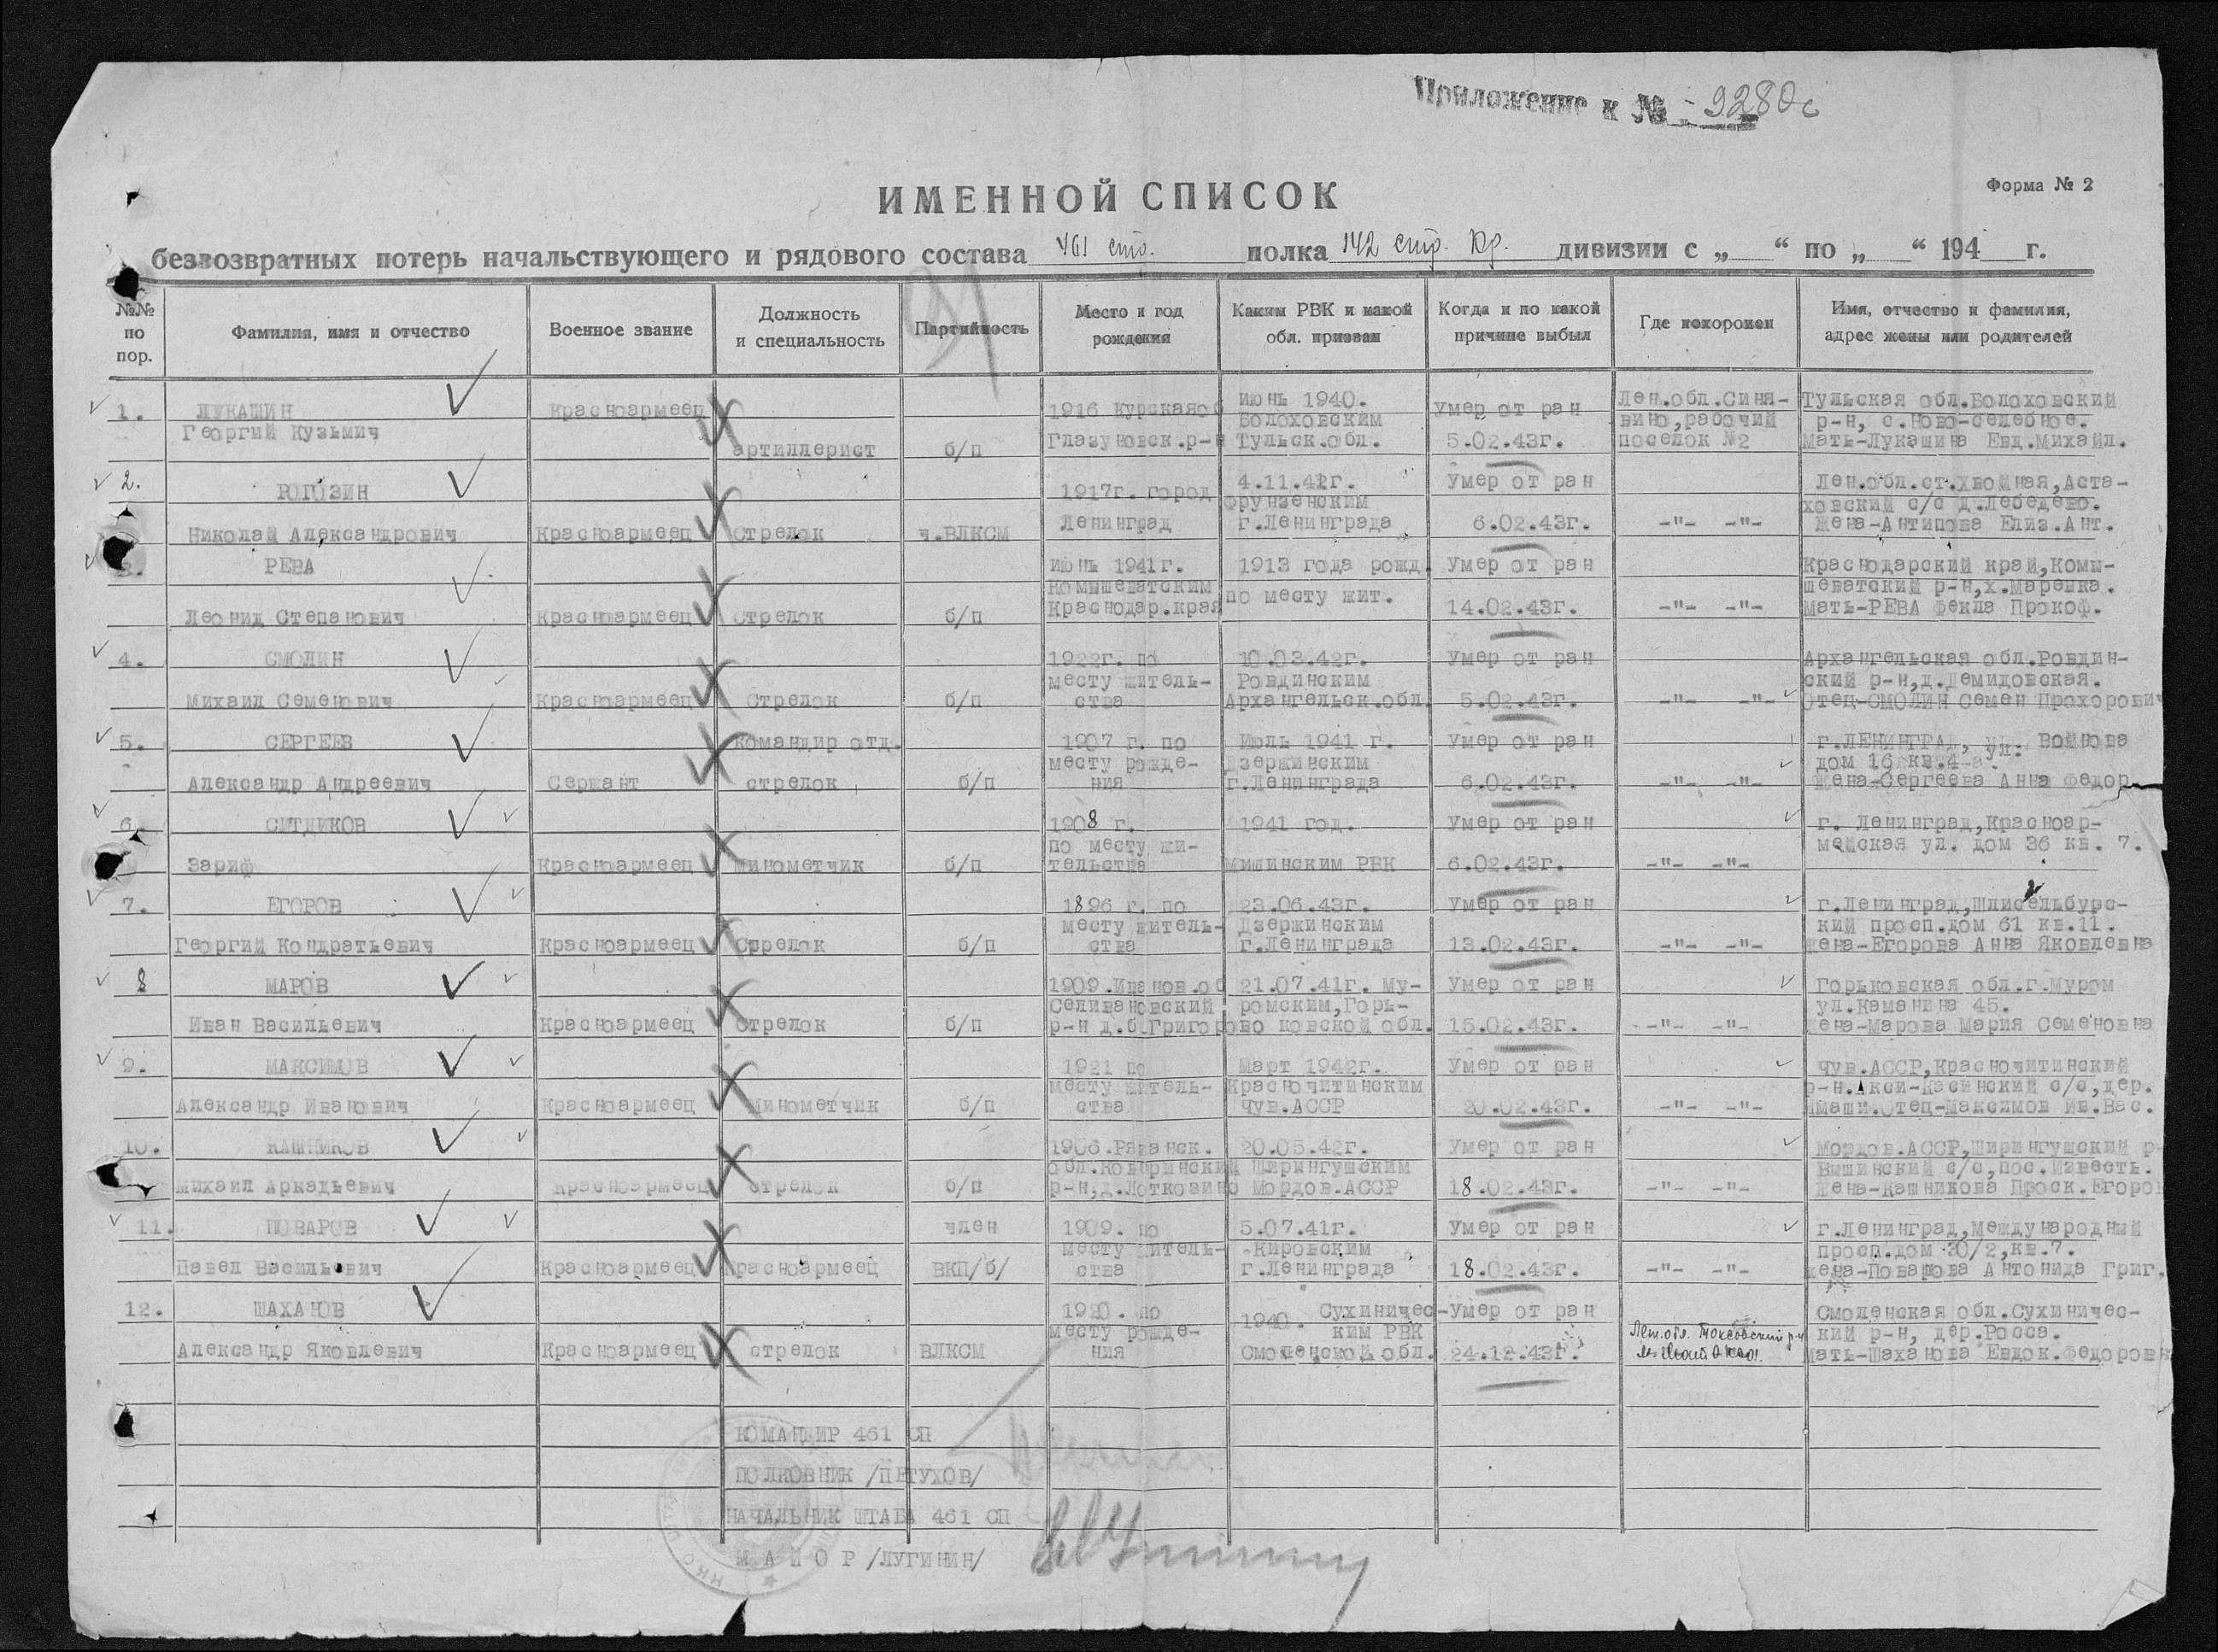 Приложение к № 9280с
Форма № 2
ИМЕННОЙ СПИСОК
безвозвратных потерь начальствующего и рядового состава 461 стр. полка 142 стр. Кр. дивизии с „ “ по „ “ 194 г.
№№ по пор. Фамилия, имя и отчество Военное звание Должность и специальность Партийность Место и год рождения Каким РВК и какой обл. призван Когда и по какой причине выбыл Где похоронен Имя, отчество и фамилия, адрес жены или родителей
июнь 1940. Лен.обл.Синя- Тульская обл.Болоховский
1. ЛУКАШИН Красноармеец 1916 Курская об Болоховским Умер от ран вино,рабочий р-н, с.Ново-селебное.
Георгий Кузьмич артиллерист б/п Глазуновск.р-н Тульск.обл. 5.02.43г. поселок №2 Мать-Лукашина Евд.Михайл.
2. РОГОЗИН 1917г. город 4.11.41г. Умер от ран Лен.обл.ст.Хвойная,Аста-
Фрунзенским ховский с/с д.Лебедево.
Николай Александрович Красноармеец Стрелок ч.ВЛКСМ Ленинград г.Ленинграда 6.02.43г. -"- -"- Жена-Антипова Елиз.Ант.
3. РЕВА июнь 1941г. 1913 года рожд. Умер от ран Краснодарский край,Комы-
Комышеватским по месту жит. шеватский р-н,х.Марешка.
Леонид Степанович Красноармеец Стрелок б/п Краснодар.края 14.02.43г. -"- -"- Мать-РЕВА Фекла Прокоф.
4. СМОЛИН 1922г. по 10.03.42г. Умер от ран Архангельская обл.Ровдин-
месту житель- Ровдинским ский р-н,д.Демидовская.
Михаил Семенович Красноармеец Стрелок б/п ства Архангельск.обл. 5.02.43г. -"- -"- Отец-СМОЛИН Семен Прохорович
5. СЕРГЕЕВ Командир отд. 1907 г. по Июль 1941 г. Умер от ран г.ЛЕНИНГРАД, ул. Войнова
месту рожде- Дзержинским дом 16 кв.4-а.
Александр Андреевич Сержант стрелок б/п ния г.Ленинграда 6.02.43г. -"- -"- Жена-Сергеева Анна Федор.
6. СИТДИКОВ 1908 г. 1941 год. Умер от ран г. Ленинград,Красноар-
по месту жи- мейская ул. дом 36 кв. 7.
Зариф Красноармеец Минометчик б/п тельства Мишинским РВК 6.02.43г. -"- -"-
7. ЕГОРОВ 1896 г. по 23.06.43г. Умер от ран г.Ленинград,Шлисельбурс-
месту житель- Дзержинским кий просп.дом 61 кв.11.
Георгий Кондратьевич Красноармеец Стрелок б/п ства г.Ленинграда 13.02.43г. -"- -"- Жена-Егорова Анна Яковлевна
8 МАРОВ 1909.Иванов.об 21.07.41г. Му- Умер от ран Горьковская обл.г.Муром
Селивановский ромским,Горь- ул.Каманина 45.
Иван Васильевич Красноармеец Стрелок б/п р-н д.б.Григорово ковской обл. 15.02.43г. -"- -"- Жена-Марова Мария Семеновна
9. МАКСИМОВ 1921 по Март 1942г. Умер от ран Чув.АССР,Красночитинский
месту житель- Красночитинским р-н.Акси-Касинский с/с,дер.
Александр Иванович Красноармеец Минометчик б/п ства Чув.АССР 20.02.43г. -"- -"- Отец-Максимов Ив.Вас.
10. КАШНИКОВ 1906.Рязанск. 20.05.42г. Умер от ран Мордов.АССР,Ширингушский р
Ширингушским Вышинский с/с,пос.Известь.
Михаил Аркадьевич Красноармеец стрелок б/п Мордов.АССР 18.02.43г. -"- -"- Жена-Кашникова Проск.Егоро
11. ПОВАРОВ член 1909. по 5.07.41г. Умер от ран г.Ленинград,Международный
месту житель- Кировским просп.дом 30/2,кв.7.
Павел Васильевич Красноармеец Красноармеец ВКП/б/ ства г.Ленинграда 18.02.43г. -"- -"- Жена-Поварова Антонида Григ.
12. ШАХАНОВ 1920. по 1940. Сухиничес- Умер от ран Смоленская обл.Сухиничес-
месту рожде- ким РВК Лен.обл. Токсовский р-н кий р-н, дер.Росса.
Александр Яковлевич Красноармеец стрелок ВЛКСМ ния Смоленской обл. 24.12.43г. Мать-Шаханова Евдок.Федоровн
КОМАНДИР 461 СП
ПОЛКОВНИК /ПЕТУХОВ/
НАЧАЛЬНИК ШТАБА 461 СП
МАЙОР /ЛУГИНИН/